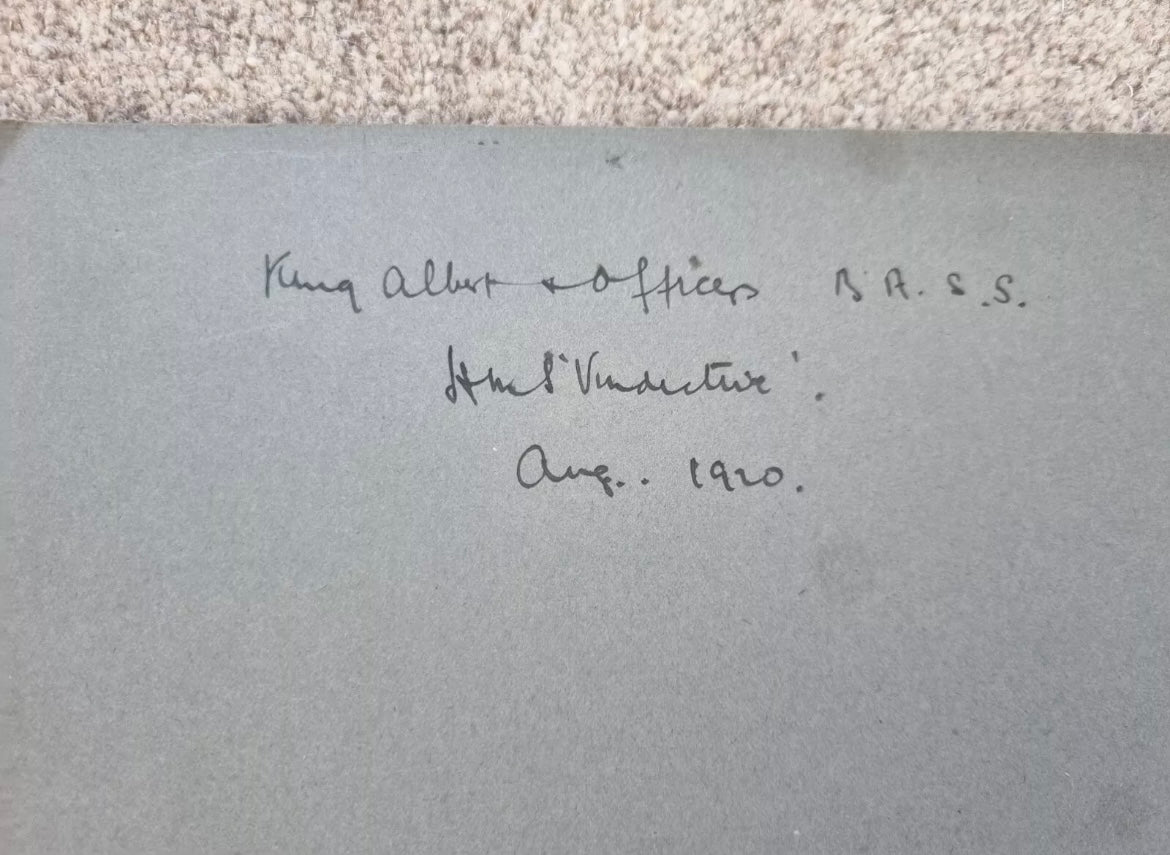 King Albert + Officers B.A.S.S.
HMS 'Vindictive'.
Aug.. 1920.